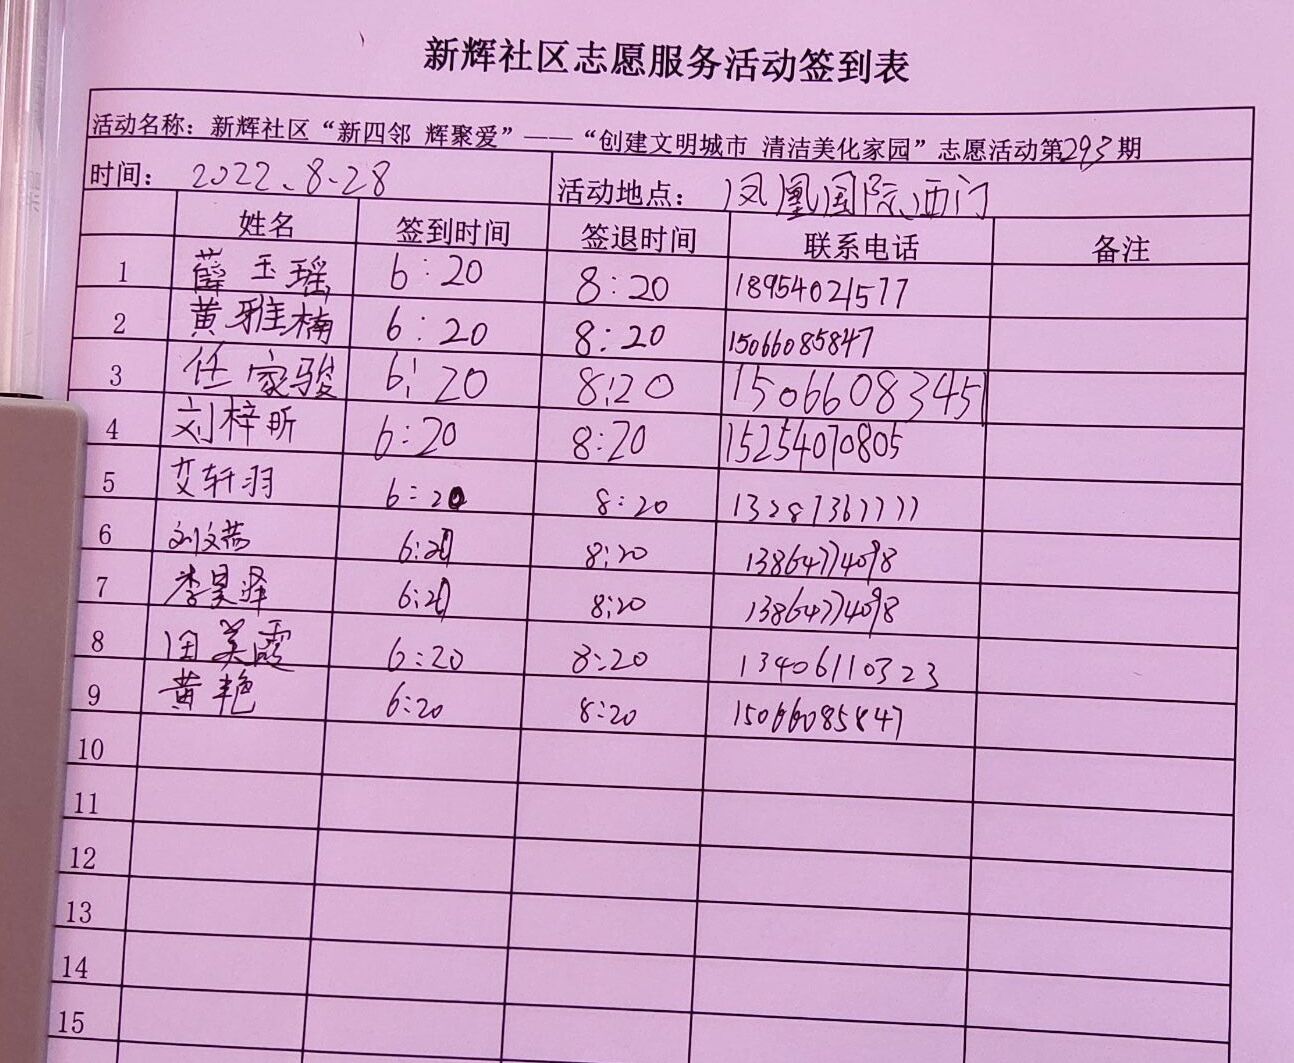 新辉社区志愿服务活动签到表
活动名称：新辉社区“新四邻 辉聚爱”——“创建文明城市 清洁美化家园”志愿活动第293期
时间： 2022.8.28 活动地点： 凤凰国际院西门
姓名 签到时间 签退时间 联系电话 备注
1 薛玉瑶 6:20 8:20 18954021577
2 黄雅楠 6:20 8:20 15066085847
3 任家骏 6:20 8:20 15066083451
4 刘梓昕 6:20 8:20 15254070805
5 艾轩羽 6:20 8:20 13287367777
6 刘文燕 6:20 8:20 13864774098
7 李昊泽 6:20 8:20 13864774098
8 田美霞 6:20 8:20 13406110323
9 黄艳 6:20 8:20 15066085847
10
11
12
13
14
15